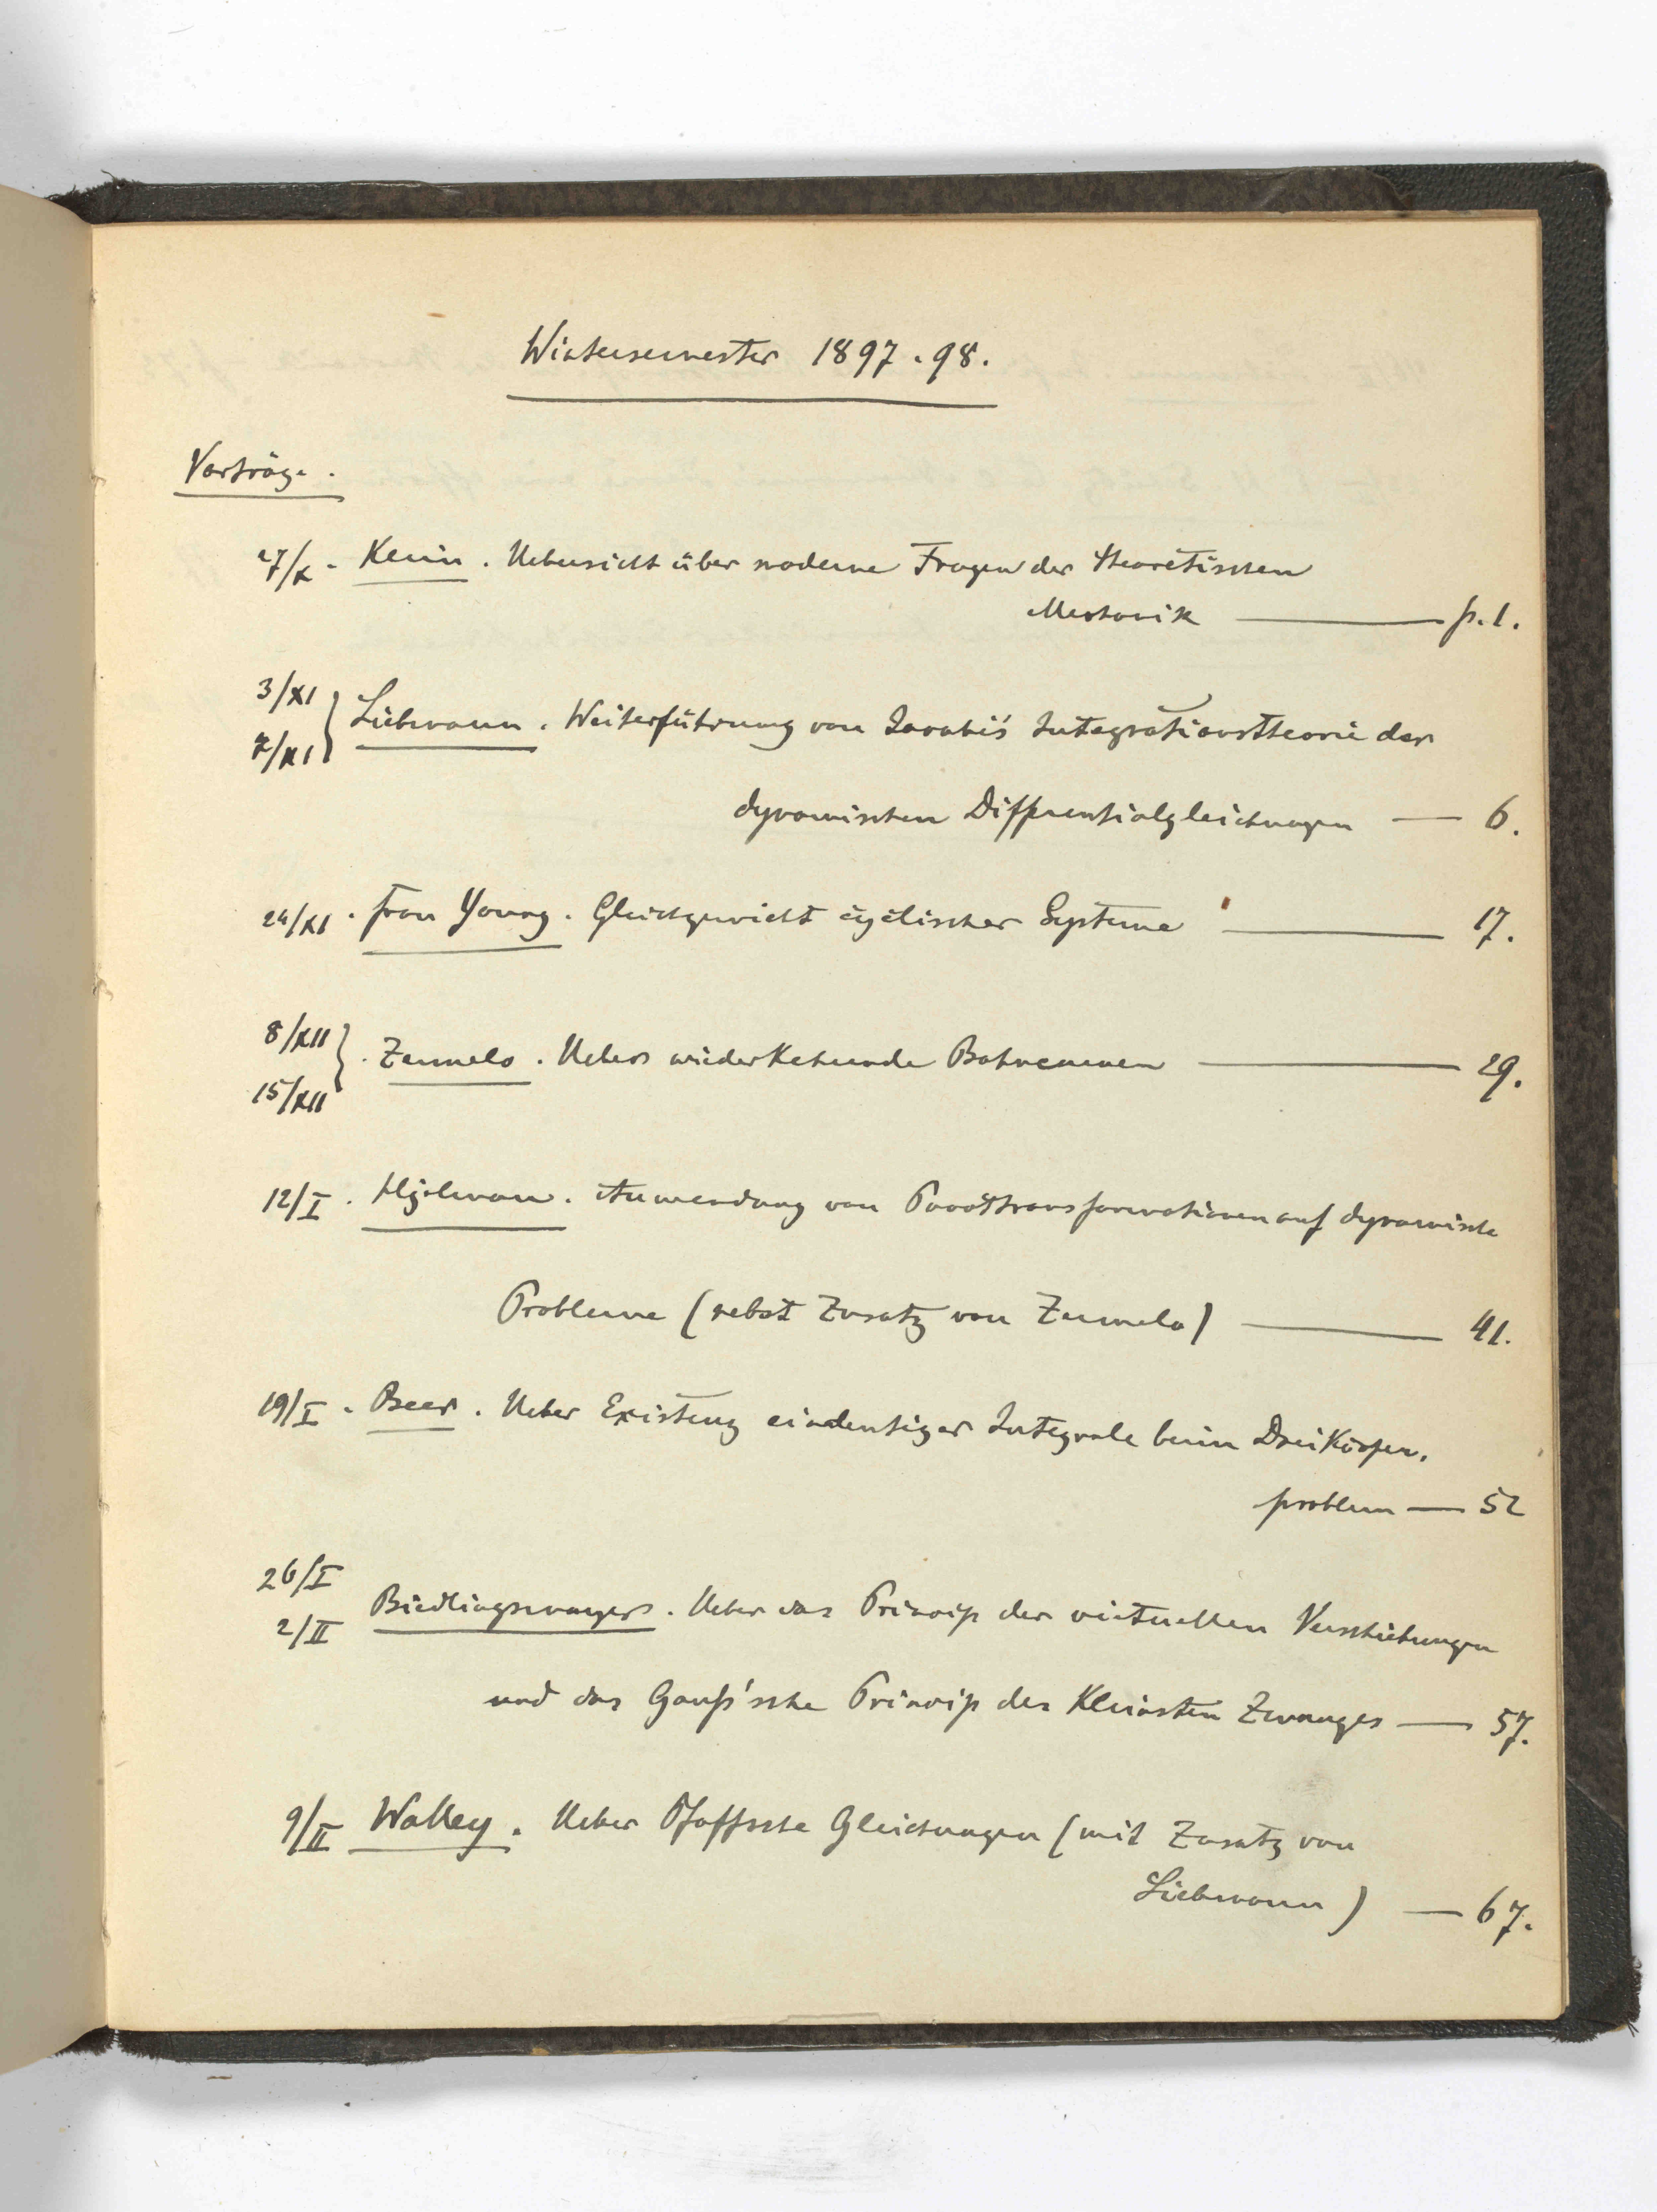 Wintersemester 1897.98.
Vorträge.
27/X. Klein. Uebersicht über moderne Fragen der theoretischen
Mechanik — p. 1.
3/XI
7/XI } Liebmann. Weiterführung von Jacobi's Integrationstheorie der
dynamischen Differentialgleichungen — 6.
24/XI. Frau Young. Gleichgewicht cyclischer Systeme — 17.
8/XII
15/XII } . Zermelo. Ueber wiederkehrende Bahncurven — 29.
12/I. Hjelman. Anwendung von Punkttransformationen auf dynamische
Probleme (nebst Zusatz von Zermelo) — 41.
19/I. Beer. Ueber Existenz eindeutiger Integrale beim Dreikörper.
problem — 52
26/I
2/II Biedlingmayer. Ueber das Princip der virtuellen Verschiebungen
und das Gauß'sche Princip des kleinsten Zwanges — 57.
9/II Walley. Ueber Pfaffsche Gleichungen (mit Zusatz von
Liebmann) — 67.